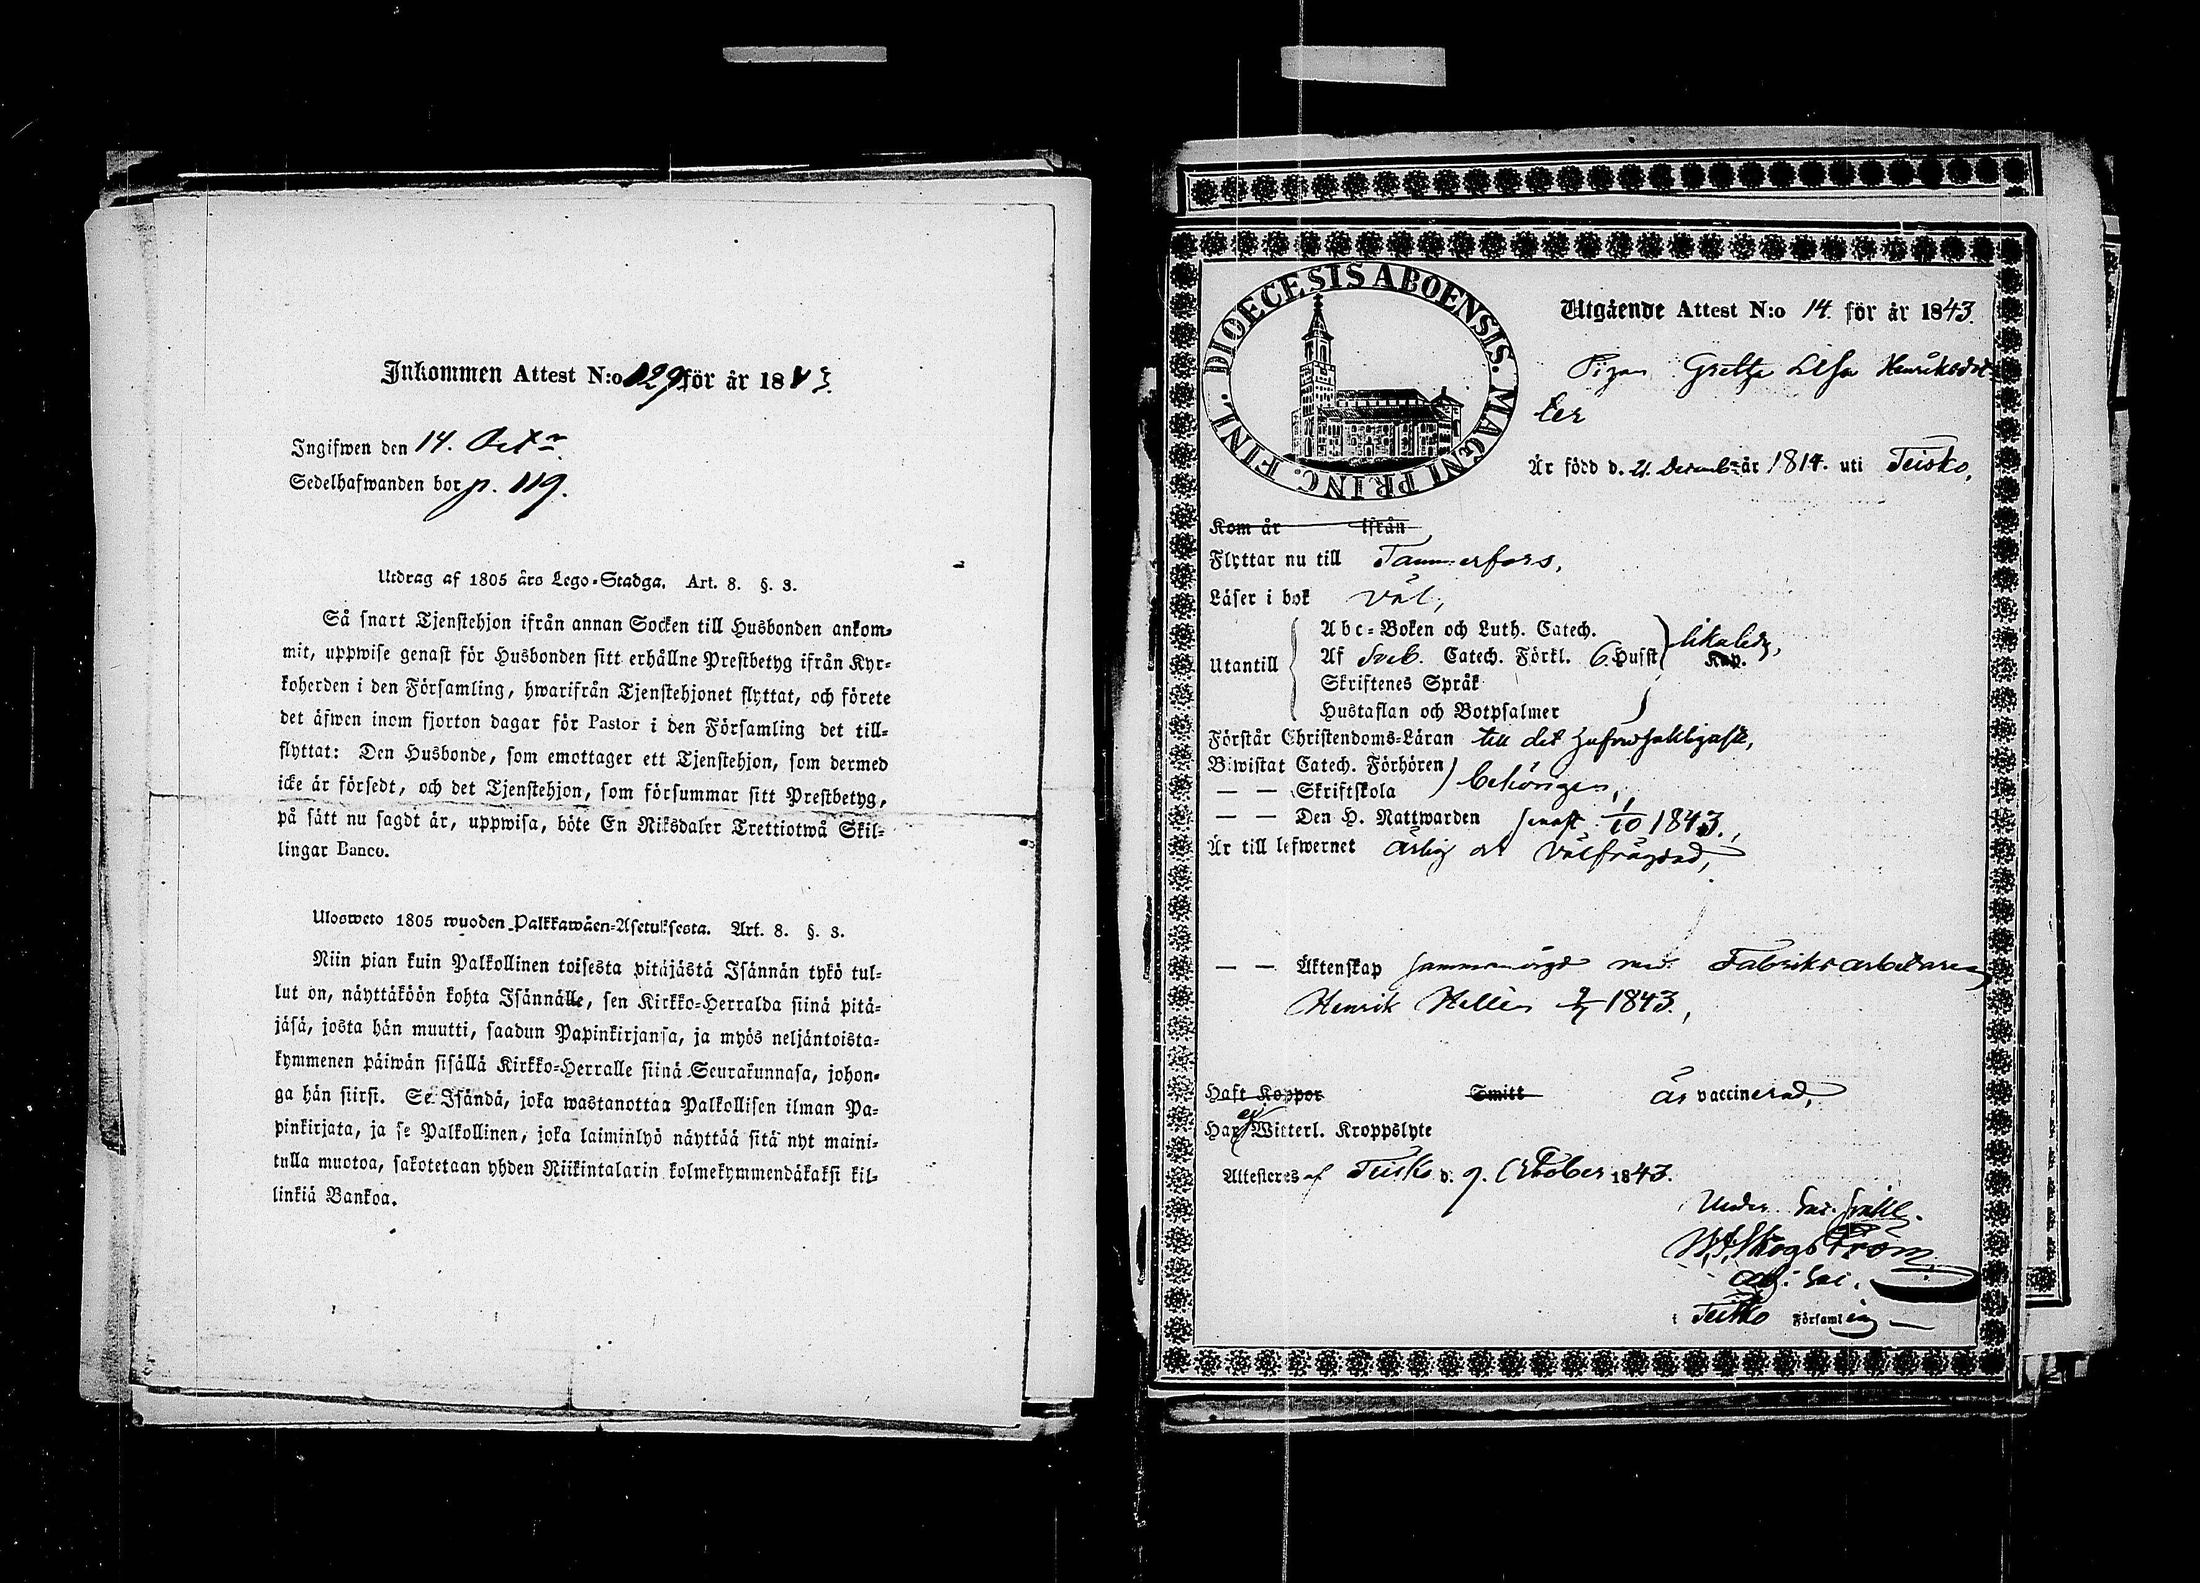 Inkommen Attest N:o 129 för år 1843.
Ingifwen den 14. Octr.
Sedelhafwanden bor p. 119.
Utdrag af 1805 års Lego-Stadga. Art. 8. §. 3.
Så snart Tjenstehjon ifrån annan Socken till Husbonden ankom-
mit, uppwise genast för Husbonden sitt erhållne Prestbetyg ifrån Kyr-
koherden i den Församling, hwarifrån Tjenstehjonet flyttat, och förete
det äfwen inom fjorton dagar för Pastor i den Församling det till-
flyttat: Den Husbonde, som emottager ett Tjenstehjon, som dermed
icke är försedt, och det Tjenstehjon, som försummar sitt Prestbetyg,
på sätt nu sagdt är, uppwisa, böte En Riksdaler Trettiotwå Skil-
lingar Banco.
Ulosweto 1805 wuoden Palkkawäen-Asetuksesta. Art. 8. §. 3.
Niin pian kuin Palkollinen toisesta pitäjästä Isännän tykö tul-
lut on, näyttäköön kohta Isännälle, sen Kirkko-Herralda siinä pitä-
jäsä, josta hän muutti, saadun Papinkirjansa, ja myös neljäntoista-
kymmenen päiwän sisällä Kirkko-Herralle siinä Seurakunnasa, johon-
ga hän siirsi. Se Isändä, joka wastanottaa Palkollisen ilman Pa-
pinkirjata, ja se Palkollinen, joka laiminlyö näyttää sitä nyt maini-
tulla muotoa, sakotetaan yhden Riikintalarin kolmekymmendäkaksi kil-
linkiä Bankoa.
DIOECESIS ABOENSIS. MAGNI PRINC. FINL.
Utgående Attest N:o 14. för år 1843.
Pigan Gretha Lisa Henriksdot-
ter
Är född d. 21. Decemb. år 1814. uti Teisko,
Kom år ifrån
Flyttar nu till Tammerfors,
Läser i bok väl,
Utantill
Abc-Boken och Luth. Catech.
Af Sveb. Catech. Förkl. 6 Hufst. Kap. likaledes,
Skriftenes Språk
Hustaflan och Botpsalmer
Förstår Christendoms-Läran till det
Biwistat Catech. Förhören
— — Skriftskola behörigen,
— — Den H. Nattwarden senast 1/10 1843.,
Är till lefwernet ärlig och välfrägdad,
— — Äktenskap sammanvigd med Fabriksarbetaren
Henrik Hellén 1843.,
Haft Koppor Smitt är vaccinerad,
Har ej Witterl. Kroppslyte
Attesteres af Teisko d. 9. October 1843.
Under
Skogström
i Teisko Församling